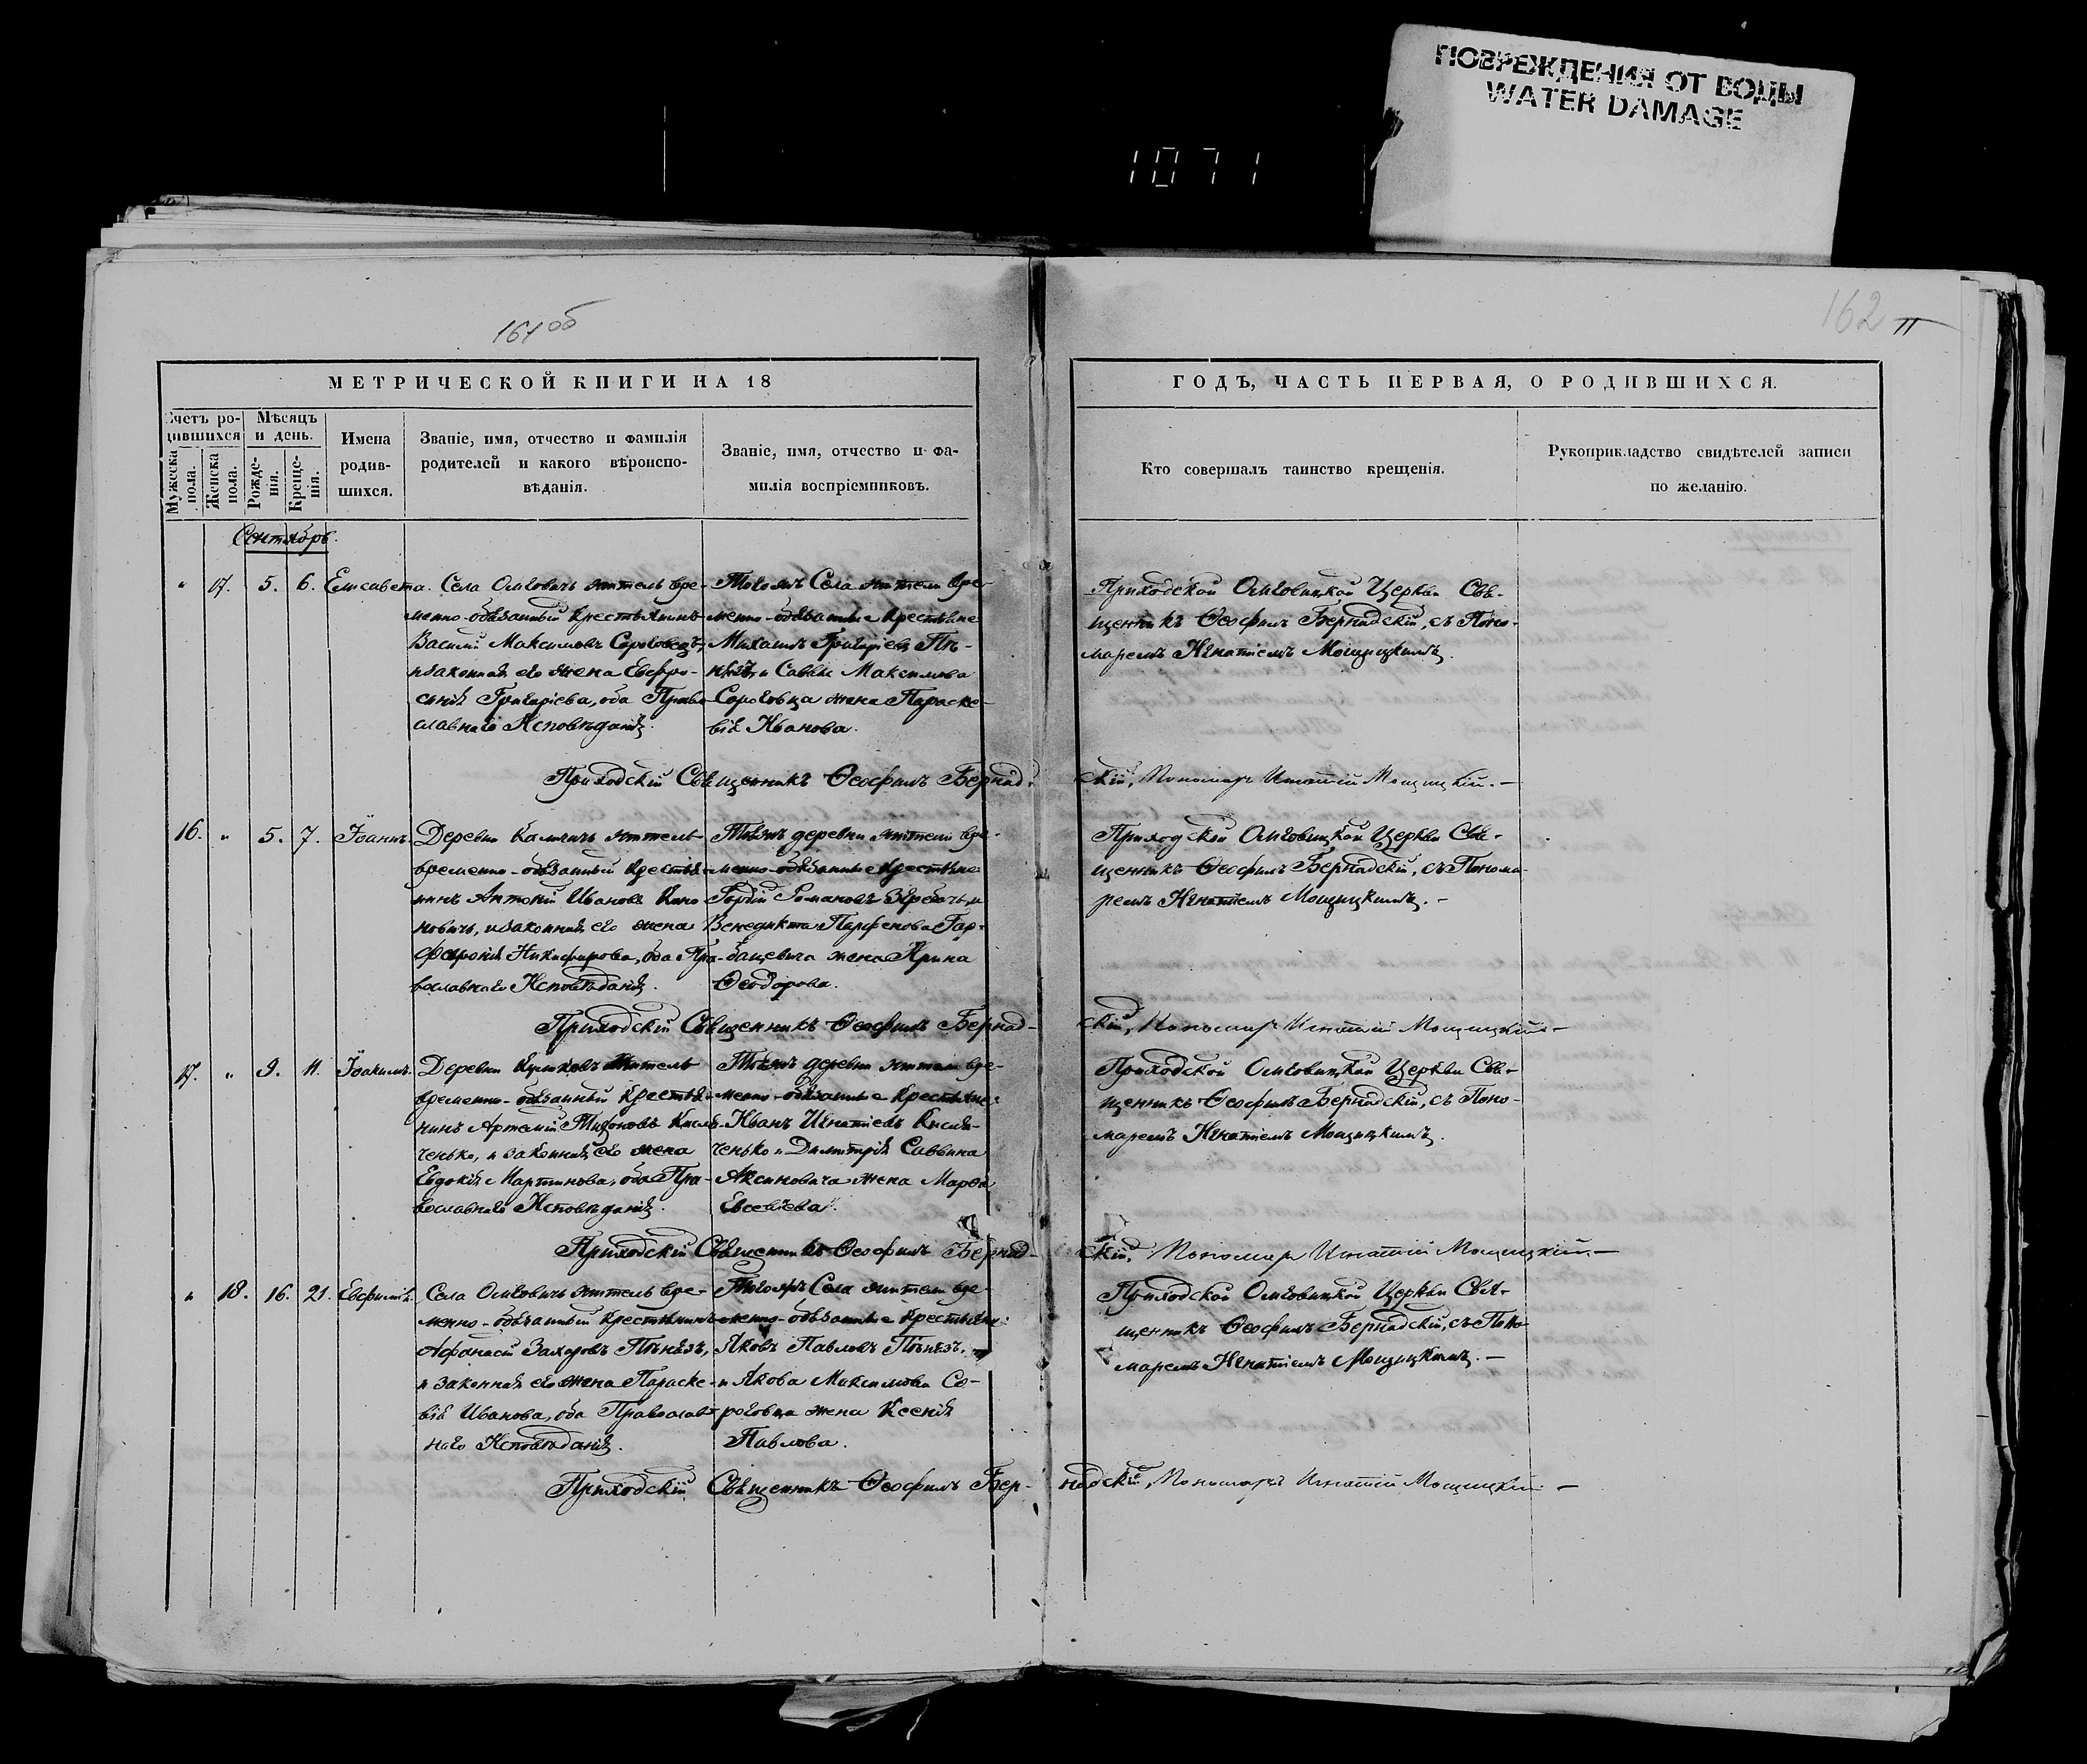 ПОВРЕЖДЕНИЯ ОТ ВОДЫ
WATER DAMAGE
1071
161 об
162
11
МЕТРИЧЕСКОЙ КНИГИ НА 18
ГОДЪ, ЧАСТЬ ПЕРВАЯ, О РОДИВШИХСЯ.
Счетъ ро-
дившихся
Мужеска пола.
Женска пола.
Мѣсяцъ
и день.
Рожде-
нія.
Креще-
нія.
Имена
родив-
шихся.
Званіе, имя, отчество и фамилія
родителей и какого вѣроиспо-
вѣданія.
Званіе, имя, отчество и фа-
милія воспріемниковъ.
Кто совершалъ таинство крещенія.
Рукоприкладство свидѣтелей записи
по желанію.
Сентябрь.
" 17. 5. 6. Елисавета.
Села Олговичъ житель вре-
менно-обязанный крестьянинъ
Василій Максимовъ Сороговецъ,
и законная его жена Евфро-
синія Григоріева, оба Право-
славнаго Исповѣданія.
Тогожъ Села жители вре-
менно-обязанные крестьяне
Михаилъ Григоріевъ Пѣ-
нязь, и Саввы Максимова
Сороговца жена Параске-
вія Иванова.
Приходской Олговицкой Церкви Свя-
щенникъ Ѳеофилъ Бернадскій, съ Поно-
маремъ Игнатіемъ Мощицкимъ.
Приходскій Священникъ Ѳеофилъ Бернад-
скій, Пономарь Игнатій Мощицкій.
16. " 5. 7. Іоаннъ.
Деревни житель
временно-обязанный крестья-
нинъ Антоній Ивановъ Коно-
новичъ, и законная его жена
Февронія Никифорова, оба Пра-
вославнаго Исповѣданія.
Тойжъ деревни жители вре-
менно-обязанные крестьяне:
Гордій Романовъ и
Венедикта Парфенова Гар-
бацевича жена Ирина
Ѳеодорова.
Приходской Олговицкой Церкви Свя-
щенникъ Ѳеофилъ Бернадскій, съ Понома-
ремъ Игнатіемъ Мощицкимъ.
Приходскій Священникъ Ѳеофилъ Бернад-
скій, Пономарь Игнатій Мощицкій
17. " 9. 11. Іоакимъ.
Деревни Куликовъ житель
временно-обязанный крестья-
нинъ Артемій Тихоновъ Кисля-
ченько, и законная его жена
Евдокія Мартинова, оба Пра-
вославнаго Исповѣданія.
Тойжъ деревни жители вре-
менно-обязанные крестьяне:
Иванъ Игнатіевъ Кисля-
ченько и Димитрія Саввина
Аксиновича жена Марѳа
Евсеѣева.
Приходской Олговицкой Церкви Свя-
щенникъ Ѳеофилъ Бернадскій, съ Поно-
маремъ Игнатіемъ Мощицкимъ.
Приходскій Священникъ Ѳеофилъ Бернад-
скій, Пономарь Игнатій Мощицкій.
" 18. 16. 21. Евфимія.
Села Олговичъ житель вре-
менно-обязанный крестьянинъ
Афанасій Захаровъ Пѣнязь,
и законная его жена Параске-
вія Иванова, оба Православ-
наго Исповѣданія.
Тогожъ Села жители вре-
менно-обязанные крестьяне:
Яковъ Павловъ Пѣнязь,
и Якова Максимова Со-
роговца жена Ксенія
Павлова.
Приходской Олговицкой Церкви Свя-
щенникъ Ѳеофилъ Бернадскій, съ Поно-
маремъ Игнатіемъ Мощицкимъ.
Приходскій Священникъ Ѳеофилъ Бер-
надскій, Пономарь Игнатій Мощицкій